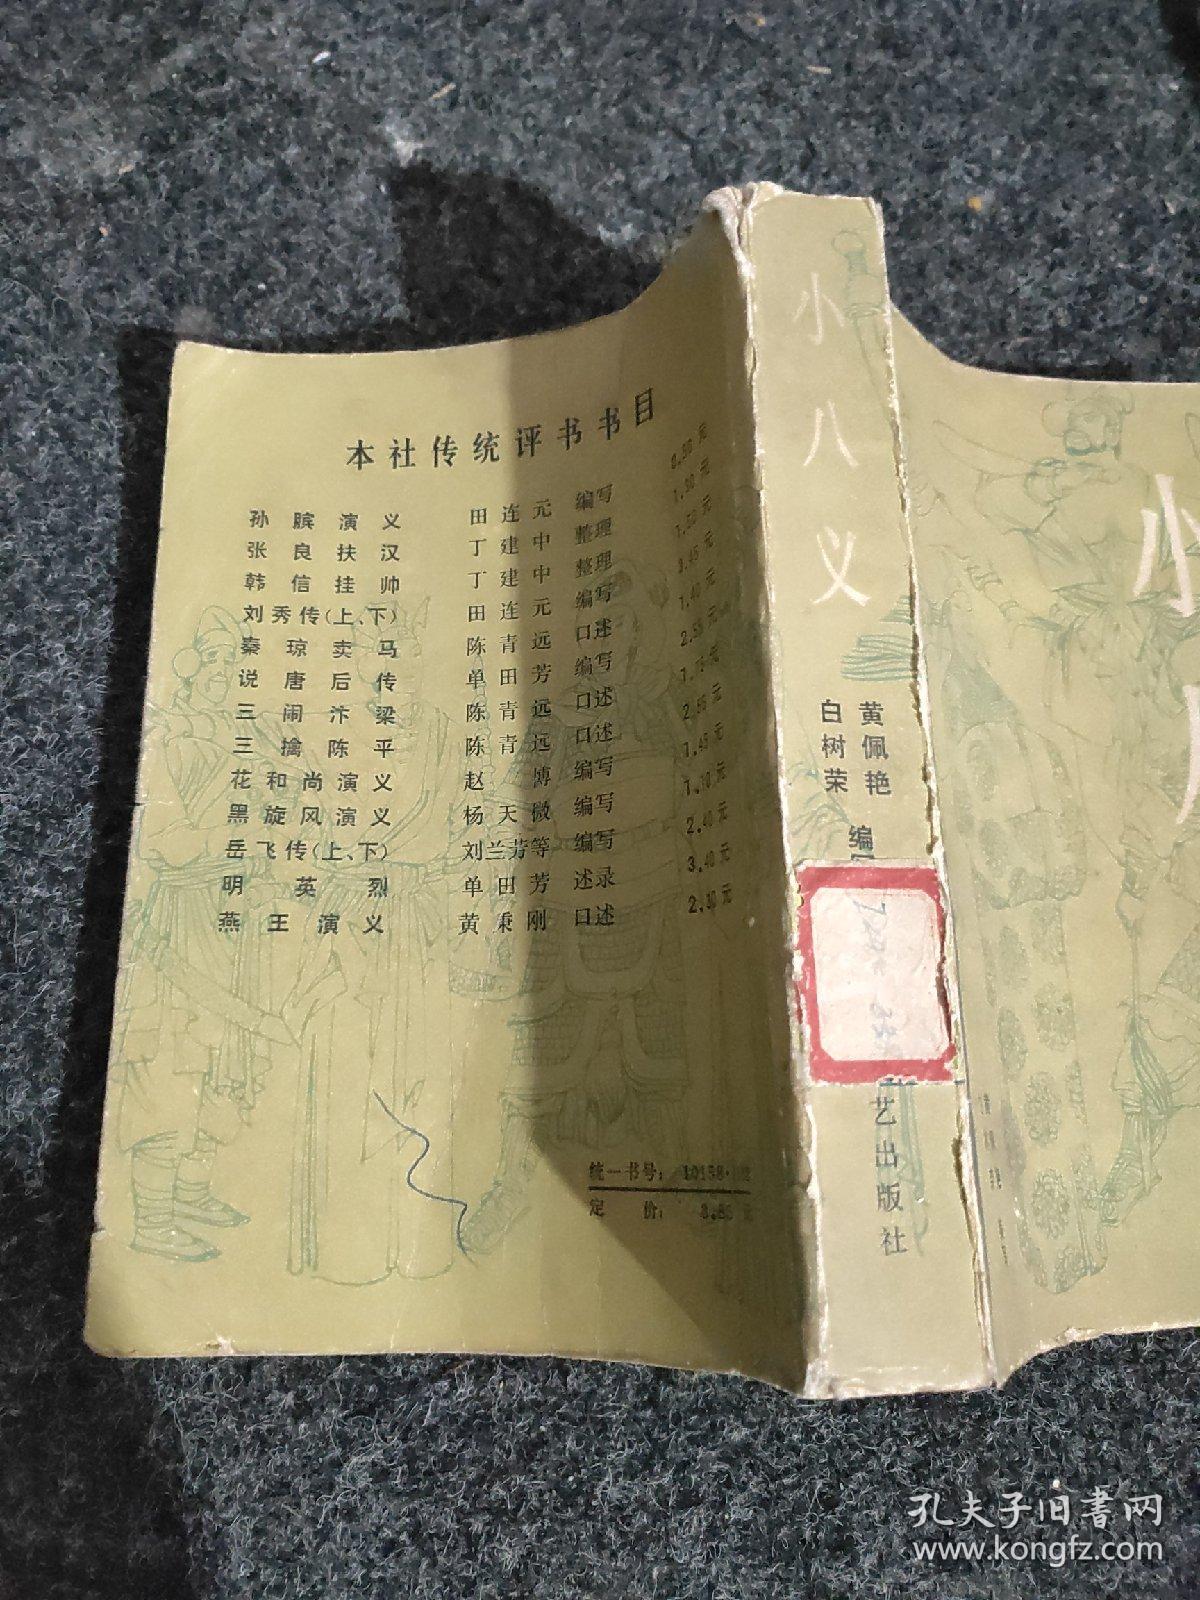 本社传统评书书目
孙膑演义 田连元 编写 0.90元
张良扶汉 丁建中 整理 1.30元
韩信挂帅 丁建中 整理
刘秀传(上、下) 田连元 编写
秦琼卖马 陈青远 口述 1.40元
说唐后传 单田芳 编写
三闹汴梁 陈青远 口述
三擒陈平 陈青远 口述
花和尚演义 赵博 编写 1.45元
黑旋风演义 杨天微 编写 1.10元
岳飞传(上、下) 刘兰芳等 编写 2.40元
明英烈 单田芳 述录 3.40元
燕王演义 黄秉刚 口述
统一书号: 10158·
定价: 元
小八义
黄佩艳
白树荣
编
艺出版社
小
孔夫子旧書网
www.kongfz.com